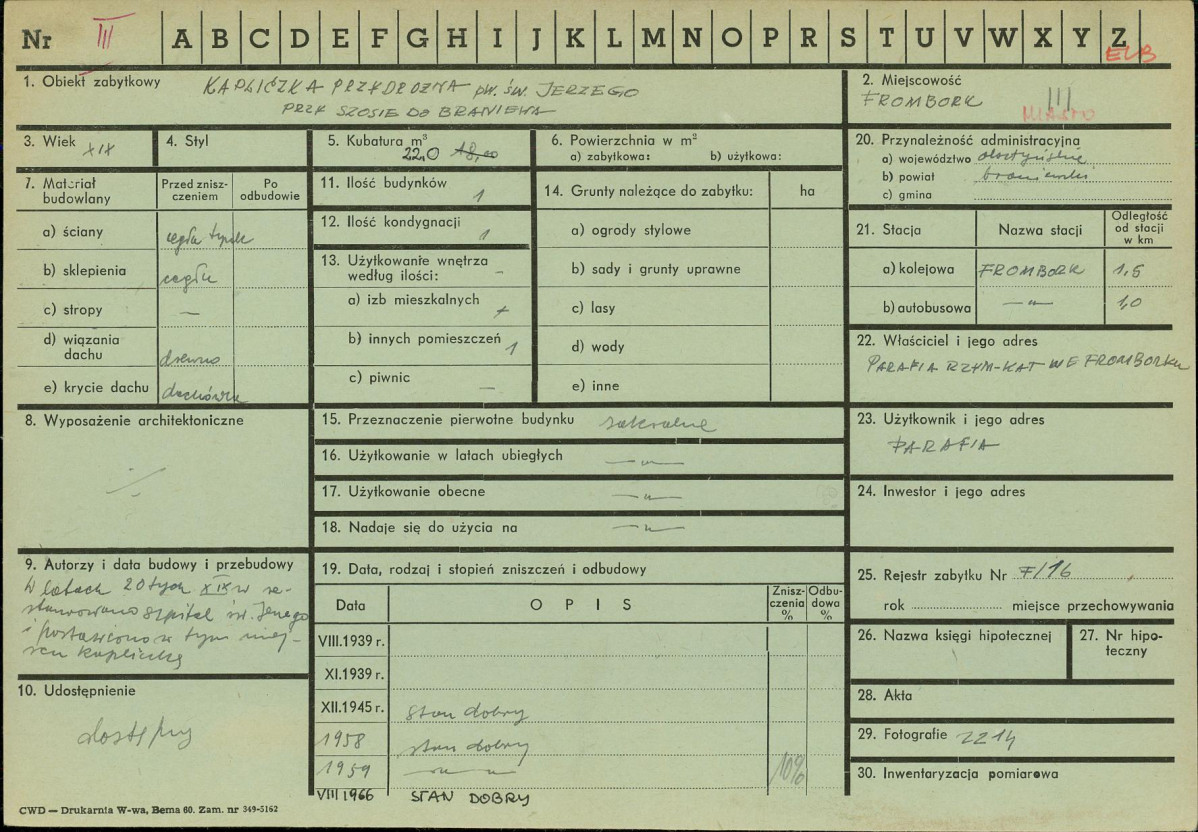 Nr III A B C D E F G H I J K L M N O P R S T U V W X Y Z
ELB
1. Obiekt zabytkowy KAPLICZKA PRZYDROŻNA pw. św. JERZEGO
PRZY SZOSIE DO BRANIEWA
2. Miejscowość
FROMBORK III
MIASTO
3. Wiek XIX
4. Styl
5. Kubatura m³
22,0 18,00
6. Powierzchnia w m²
a) zabytkowa: b) użytkowa:
20. Przynależność administracyjna
a) województwo olsztyńskie
b) powiat braniewski
c) gmina
7. Materiał budowlany
Przed zniszczeniem
Po odbudowie
a) ściany cegła tynk
b) sklepienia cegła
c) stropy —
d) wiązania dachu drewno
e) krycie dachu dachówka
11. Ilość budynków 1
12. Ilość kondygnacji 1
13. Użytkowanie wnętrza
według ilości: -
a) izb mieszkalnych
b) innych pomieszczeń 1
c) piwnic —
14. Grunty należące do zabytku: ha
a) ogrody stylowe
b) sady i grunty uprawne
c) lasy
d) wody
e) inne
21. Stacja Nazwa stacji
Odległość
od stacji
w km
a) kolejowa FROMBORK 1,5
b) autobusowa —"— 1,0
22. Właściciel i jego adres
PARAFIA RZYM-KAT WE FROMBORKU
8. Wyposażenie architektoniczne
15. Przeznaczenie pierwotne budynku sakralne
16. Użytkowanie w latach ubiegłych —"—
17. Użytkowanie obecne —"—
18. Nadaje się do użycia na —"—
23. Użytkownik i jego adres
PARAFIA
24. Inwestor i jego adres
9. Autorzy i data budowy i przebudowy
W latach 20tych XIX w
szpital św. Jerzego
i postawiono w tym miej-
scu kapliczkę
10. Udostępnienie
dostępny
19. Data, rodzaj i stopień zniszczeń i odbudowy
Data OPIS
Znisz-
czenia
%
Odbu-
dowa
%
VIII.1939 r.
XI.1939 r.
XII.1945 r. stan dobry
1958 stan dobry
1959 —"— 10%
VIII 1966 STAN DOBRY
25. Rejestr zabytku Nr F/16
rok miejsce przechowywania
26. Nazwa księgi hipotecznej
27. Nr hipo-
teczny
28. Akta
29. Fotografie 2214
30. Inwentaryzacja pomiarowa
CWD – Drukarnia W-wa, Bema 60. Zam. nr 349-5162